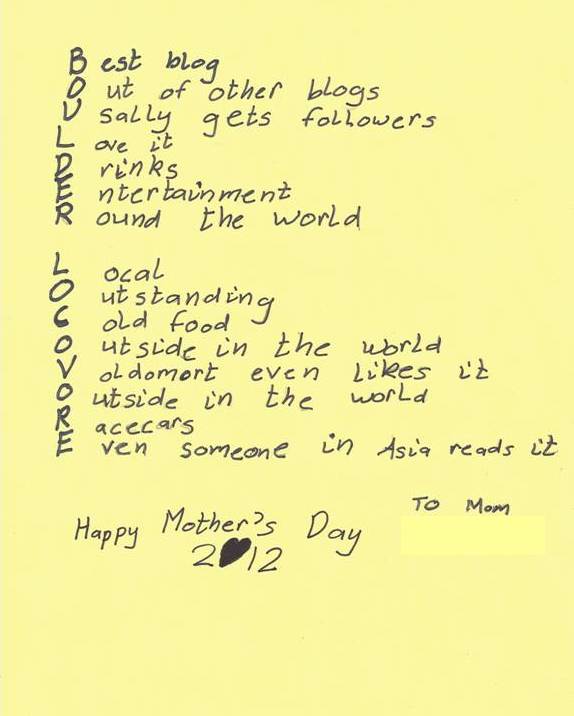 Best blog
Out of other blogs
Usally gets followers
Love it
Drinks
Entertainment
Round the world
Local
Outstanding
Cold food
Outside in the world
Voldomort even likes it
Outside in the world
Racecars
Even someone in Asia reads it
To Mom
Happy Mother's Day
2♥12